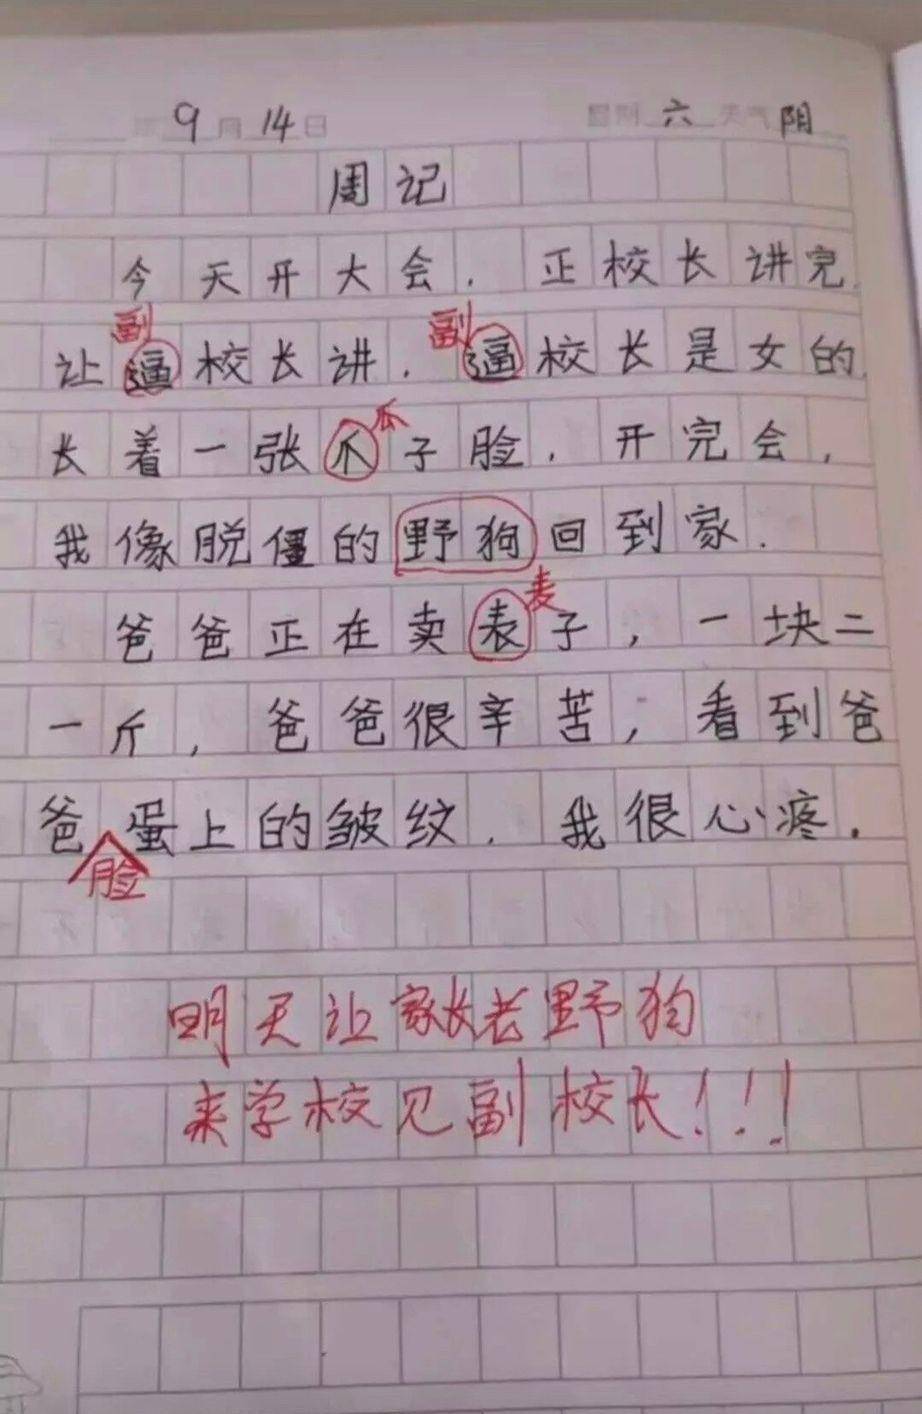 年 9 月 14 日 星期 六 天气 阴
周记
今天开大会.正校长讲完.
副 副
让逼校长讲.逼校长是女的.
瓜
长着一张爪子脸.开完会,
我像脱僵的野狗回到家.
麦
爸爸正在卖表子,一块二
一斤,爸爸很辛苦;看到爸
爸蛋上的皱纹.我很心疼.
脸
明天让家长老野狗
来学校见副校长!!!